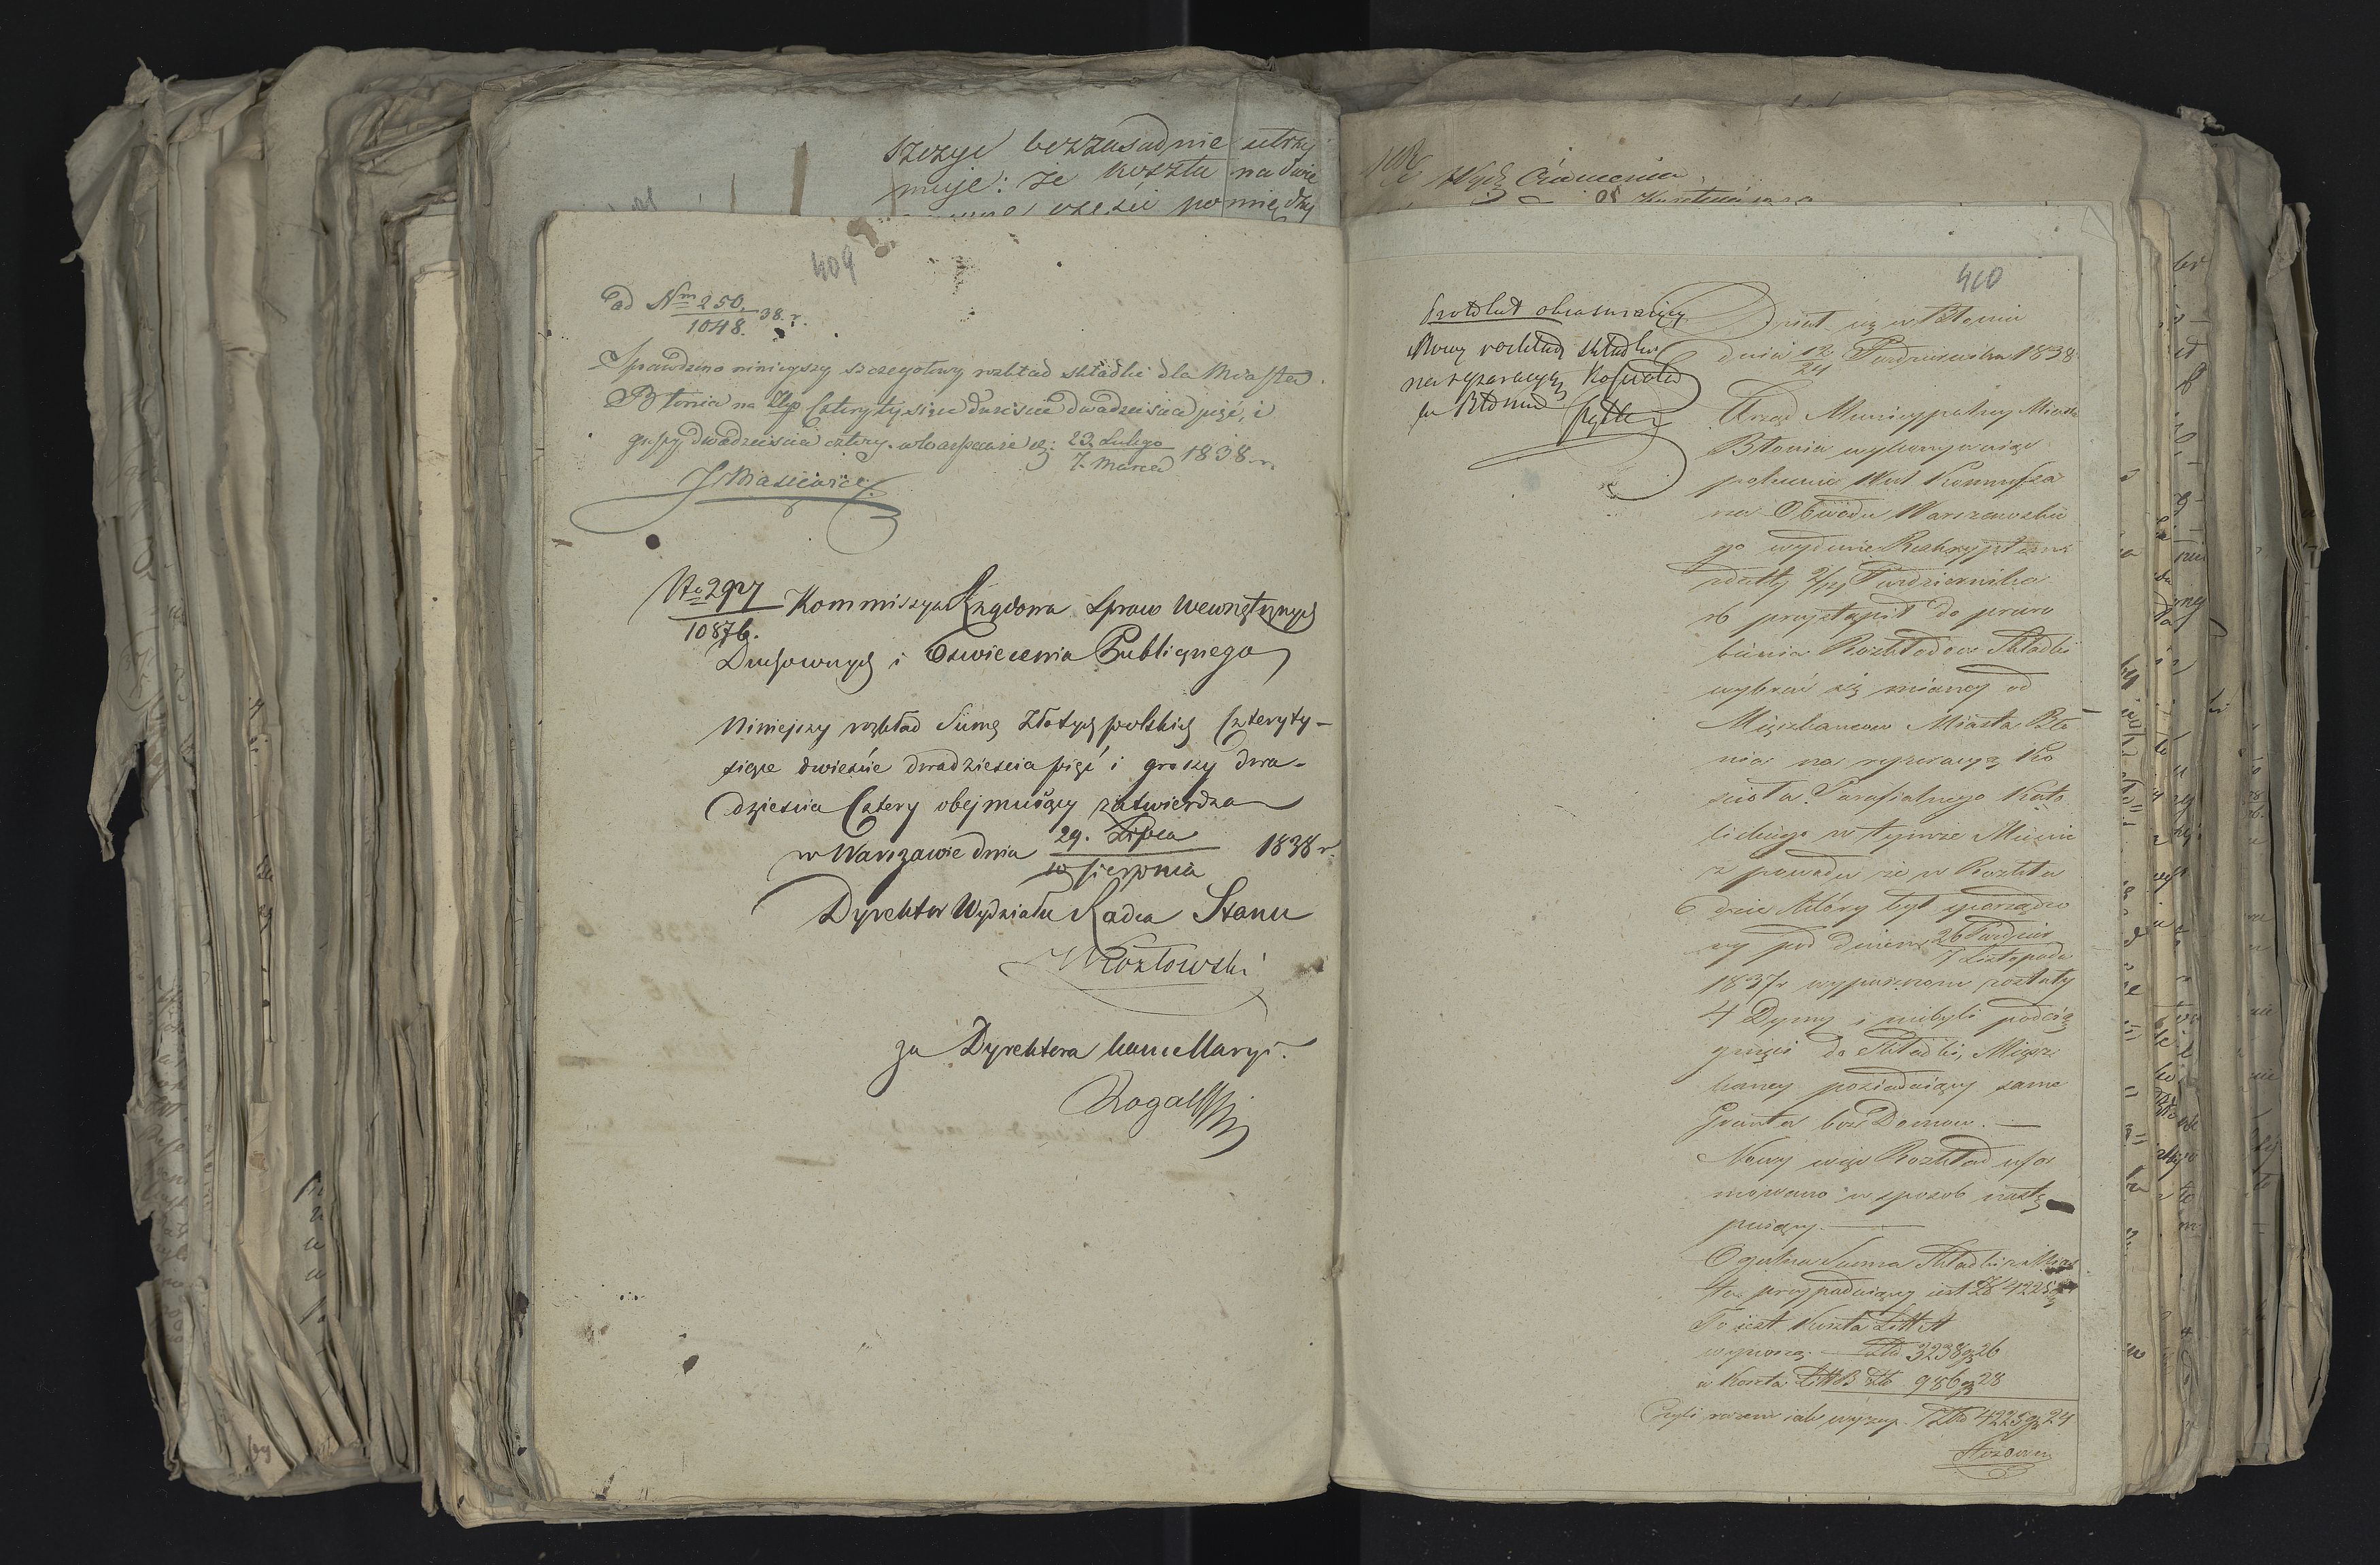 szczye bezzasadnie utrzy
muje: że koszta na dwie
części pomiędzy
409
ad Nm 250./1048. 38. r.
Sprawdzono niniejszy szczegółowy rozkład składki dla Miasta
Błonia na Złp. Cztery tysiące dwieście dwadzieścia pięć, i
groszy dwadzieścia cztery. w Warszawie d: 23 Lutego/7. Marca 1838 r.
No 2927/10876.
Kommissya Rządowa Spraw Wewnętrznych
Duchownych i Oświecenia Publicznego
Niniejszy rozkład Summę Złotych polskich Czteryty-
siące dwieście dwadzieścia pięć i groszy dwa-
dzieścia Cztery obejmujący zatwierdza
w Warszawie dnia 29. Lipca/10 Sierpnia 1838 r.
Dyrektor Wydziału Radca Stanu
Kozłowski
za Dyrektora Kancellaryi.
Rogalski
410
Protokół obejmujący
Nowy rozkład składki
na reperacyą Kościoła
w Błoniu
Działo się w Błoniu
dnia 12/24 Października 1838
Urząd Municypalny Miasta
Błonia wykonywaiąc
polecenie Kommissa
rza Obwodu Warszawskie
go wydane Reskryptem
z daty 2/14 Października
rb przystąpił do
Rozkładow Składki
wybrać się mianey od
Mieszkancow Miasta Bło
nia na reperacyą Ko
ścioła Parafialnego Kato
lickiego w tymże Mieście
z powodu że w Rozkła
dzie który był sporządzo
ny pod dniem 26 Paździer/7 Listopada
1837 r wypuszczone zostały
4 Dymy i niebyli pocią
gnięci do Składki, Miesz
kancy posiadaiący same
Grunta bez Domow. —
Nowy więc Rozkład ufor
mowano w sposob nastę
puiący. —
Ogolna Summa Składki z Mias
ta przypadaiący iest Zł 4225
To iest Koszta Litt A
wynoszą — Złp 3238 gr 26
a Koszta Litt B Złp 986 gr 28
Czyli razem iak wyżey. Złp 4225 gr 24